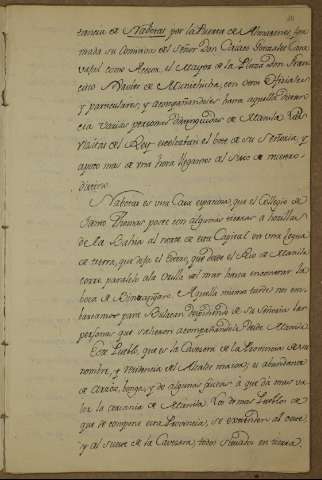 tancia de Nabotas por la Puerta de Almazenes, for
mada su Comitiva del Señor Don Ciriaco Gonzales Car
vajal como Asesor, el Mayor de la Plaza Don Fran
cisco Xavier de Manchuca, con otros Oficiales
y particulares, y acompañandoles hasta aquella distan
cia varias personas distinguidas de Manila. Las
Falúas del Rey el bote de su Señoría, y
a poco mas de una hora llegamos al sitio de nuestro
destino.
Nabotas es una Casa espaciosa que el Colegio de
Santo Thomas posee con algunas tierras a horillas
de la Bahia al norte de esta Capital en una lengua
de tierra, que deja el Estero, que desde el Rio de Manila
corre paralelo a la orilla del mar hasta encontrar la
boca de Aquella misma tarde nos em
barcamos para Bulacan despidiendo de su Señoria las
personas que salieron acompañandole desde Manila.
Este Pueblo, que es la Cavecera de la Provincia de su
nombre, y residencia del Alcalde mayor; es abundante
de arroz, bonga, y de algunas frutas a que da mas va
lor la cercanía de Manila. Los demas Pueblos de
que se compone esta Provincia, se extienden al oeste,
y al sueste de la Cavecera, todos situados en tierra